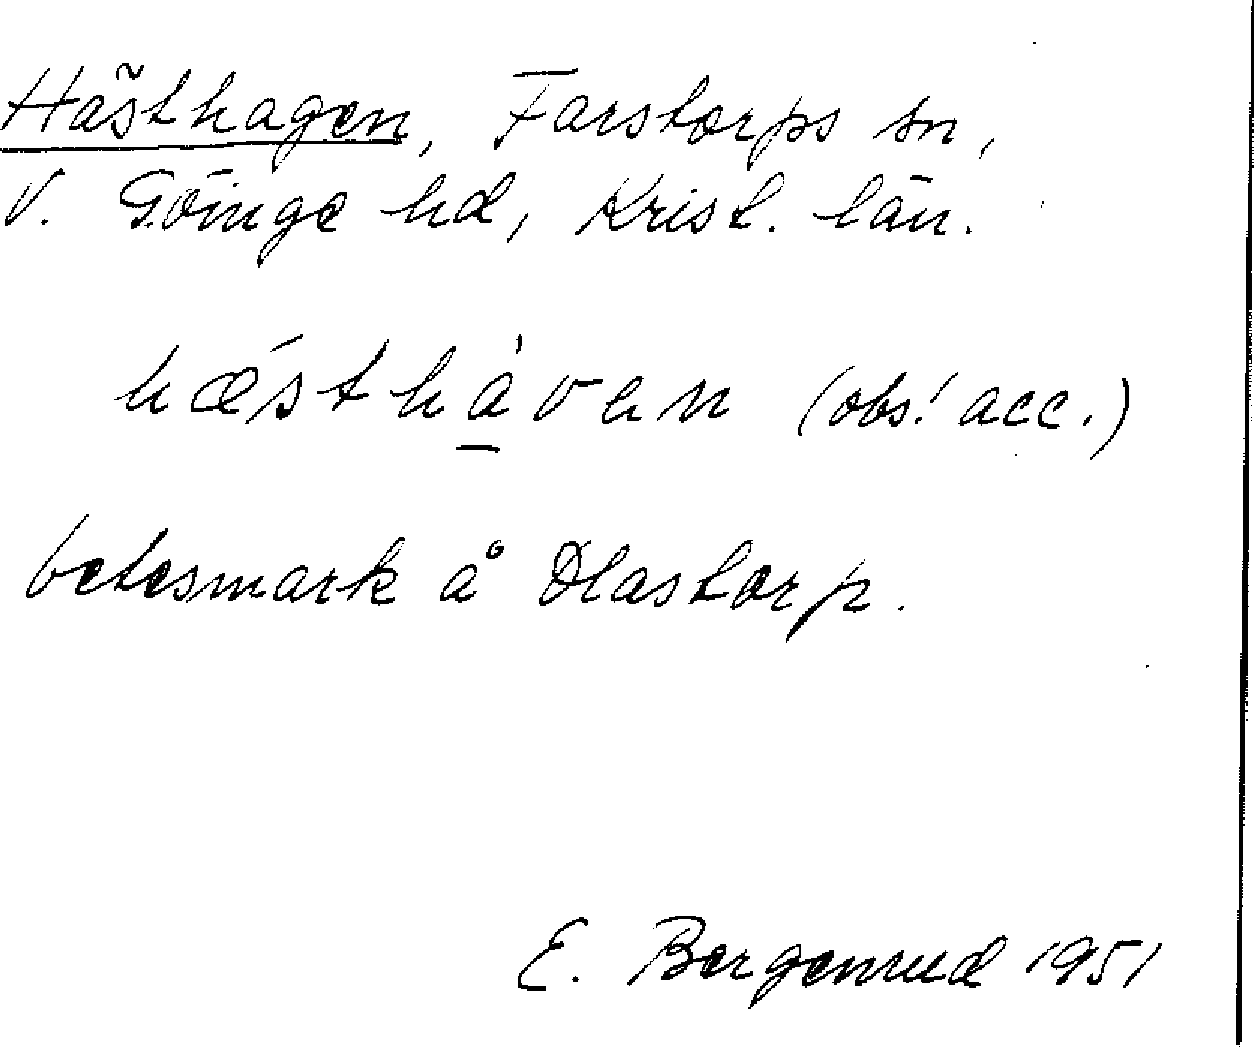 Hästhagen, Farstorps sn,
V. Göinge hd, Krist. län.
hǽsthàvan (obs! acc.)
betesmark å Olastorp.
E. Bergenrud 1951